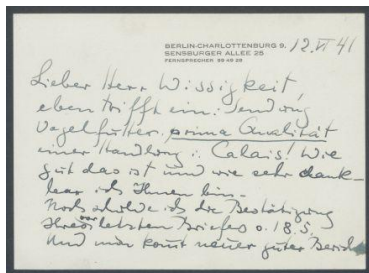 BERLIN-CHARLOTTENBURG 9.
SENSBURGER ALLEE 25
FERNSPRECHER 99 49 29
12. VI 41
Lieber Herr Wissigkeit
eben trifft ein: Sendung
Vogelfutter, prima Qualität
einer Handlung i. Calais! Wie
gut das ist und wie sehr dank-
bar ich Ihnen bin.
Noch schulde ich die Bestätigung
Ihres vorletzten Briefes v. 18.5.
Und nun kommt neuer guter Bericht